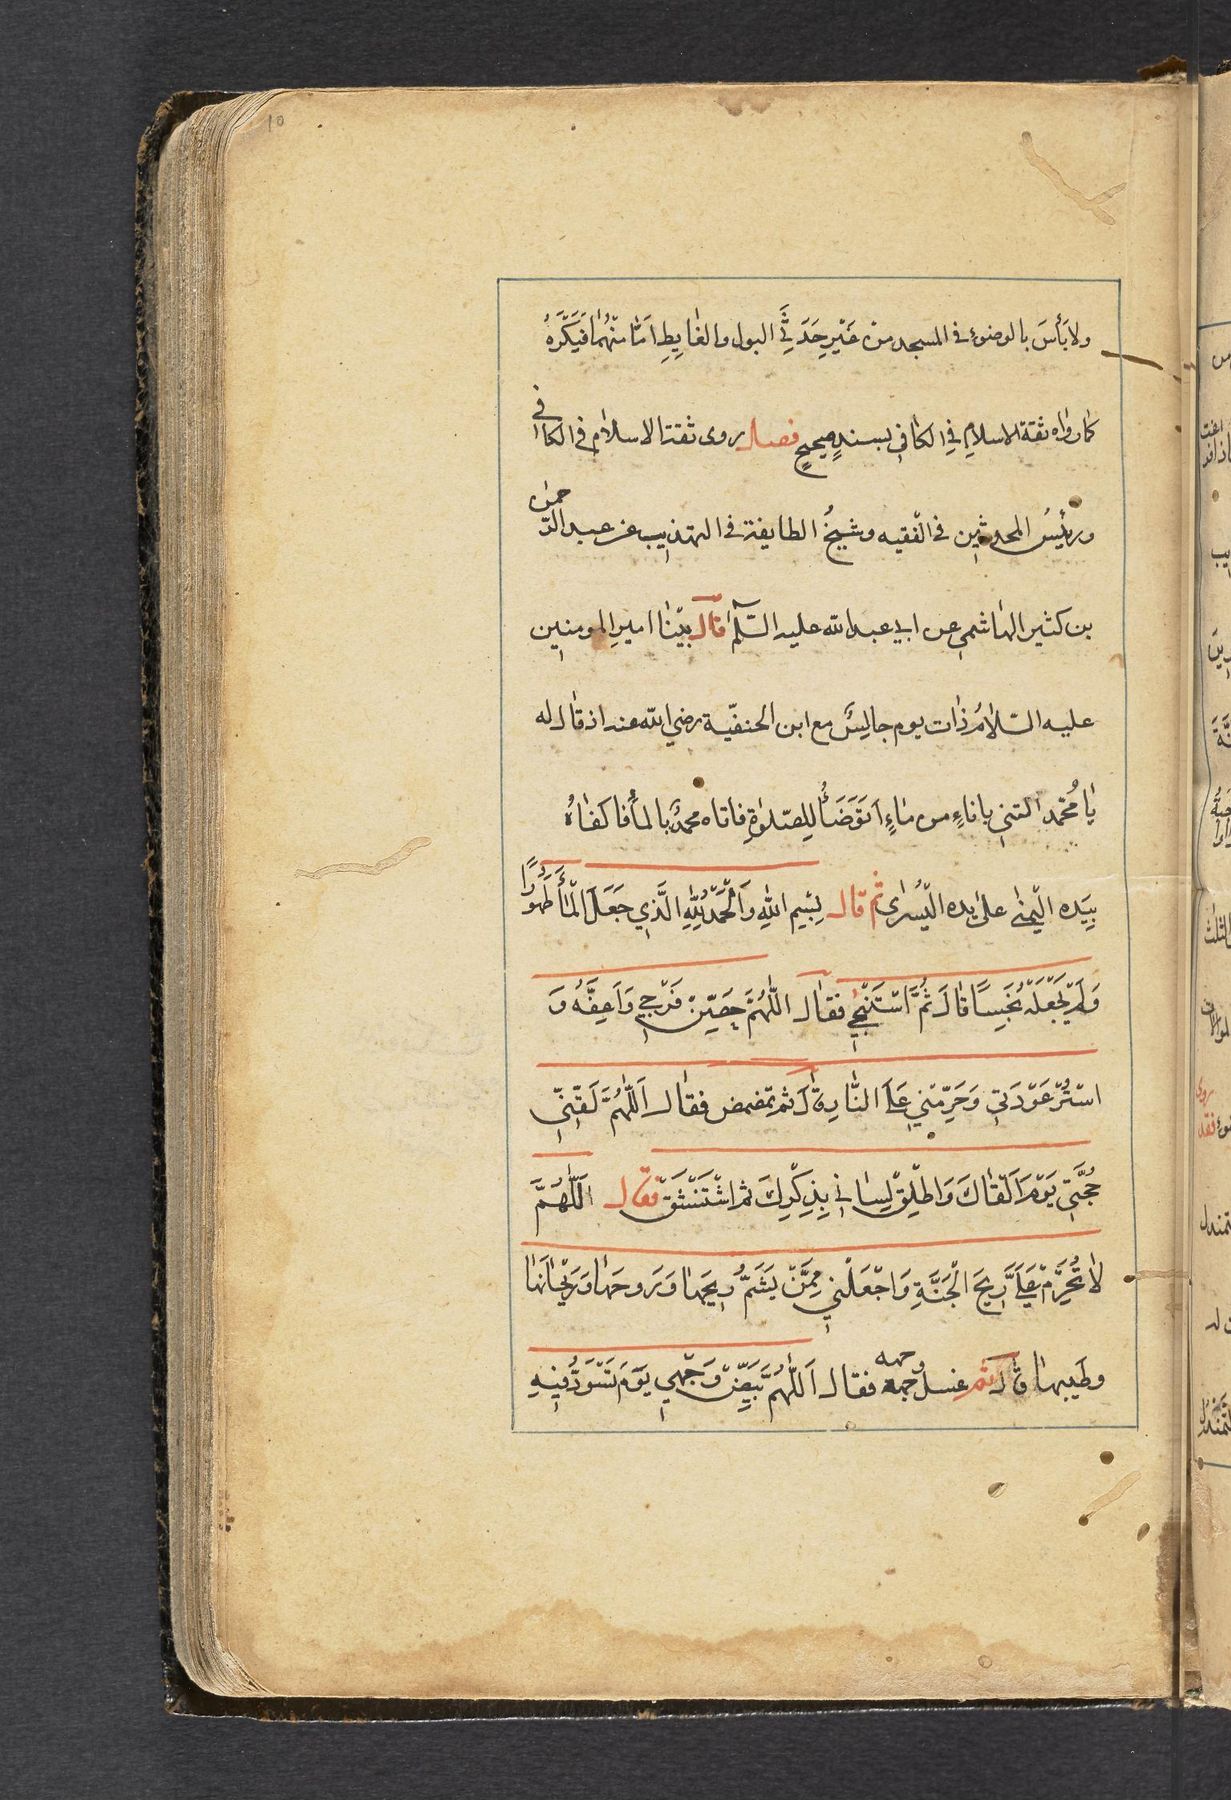 10
ولا بَأسَ بالوضوء في المسجد من غَيْرِ حَدَثَيِّ البول والغٰايِطِ امّا منْهُما فَيَكْرَهُ
كمٰا رواه ثقة الاسلامِ فِي الكافي بسندٍ صحيحٍ فصل روى ثقة الاسلام في الكافي
ورئيسُ المحدثين في الفقيه وشيخُ الطايفة في التهذيب عن عبد الرّحمن
بن كثير الهاشمي عن ابي عبد الله عليه السّلٰم قال بيْنا امير المومنين
عليه السّلامُ ذات يوم جالِسٌ مع ابن الحنفيّة رضي الله عنه اذ قال له
يٰا مُحمّد ائتني باناءٍ من ماءٍ اَتَوَضَأُ لِلصّلوٰةِ فاتاه محمدٌ بالمأ فاكفاهُ
بِيَده اليُمنىٰ علىٰ يده اليُسْرىٰ ثم قال بِسْمِ اللهِ وَالْحَمْدُ لِلّٰهِ الَّذِي جَعَلَ الْمأَ طَهُورًا
وَلَمْ يَجْعَلْهُ نَجِسًا قٰالَ ثُمَّ اسْتَنْجىٰ فقال اللّٰهُمَّ حَصِّنْ فَرْجِي وَاَعِفَّهُ وَ
اسْتُرْ عَوْرَتِي وَحَرِّمْنِي عَلَى النّٰارِ قٰالَ ثم تمضمض فقال اَللّٰهُمَّ لَقِّنِّي
حُجَّتِي يَوْمَ اَلْقٰاكَ وَاَطْلِقْ لِسٰانِي بِذِكْرِكَ ثم اسْتَنْشَقَ فقال اَللّٰهُمَّ
لاٰ تُحَرِّمْ عَلَيَّ رِيحَ الْجَنَّةِ وَاجْعَلْنِي مِمَّنْ يَشَمُّ رِيحَهٰا وَرَوحَهٰا وَرَيْحٰانَهٰا
وطِيبهٰا قٰالَ ثم غسل وجهه وجهه فقال اَللّٰهُمَّ بَيِّضْ وَجْهِي يَوْمَ تَسْوَدُّ فِيهِ